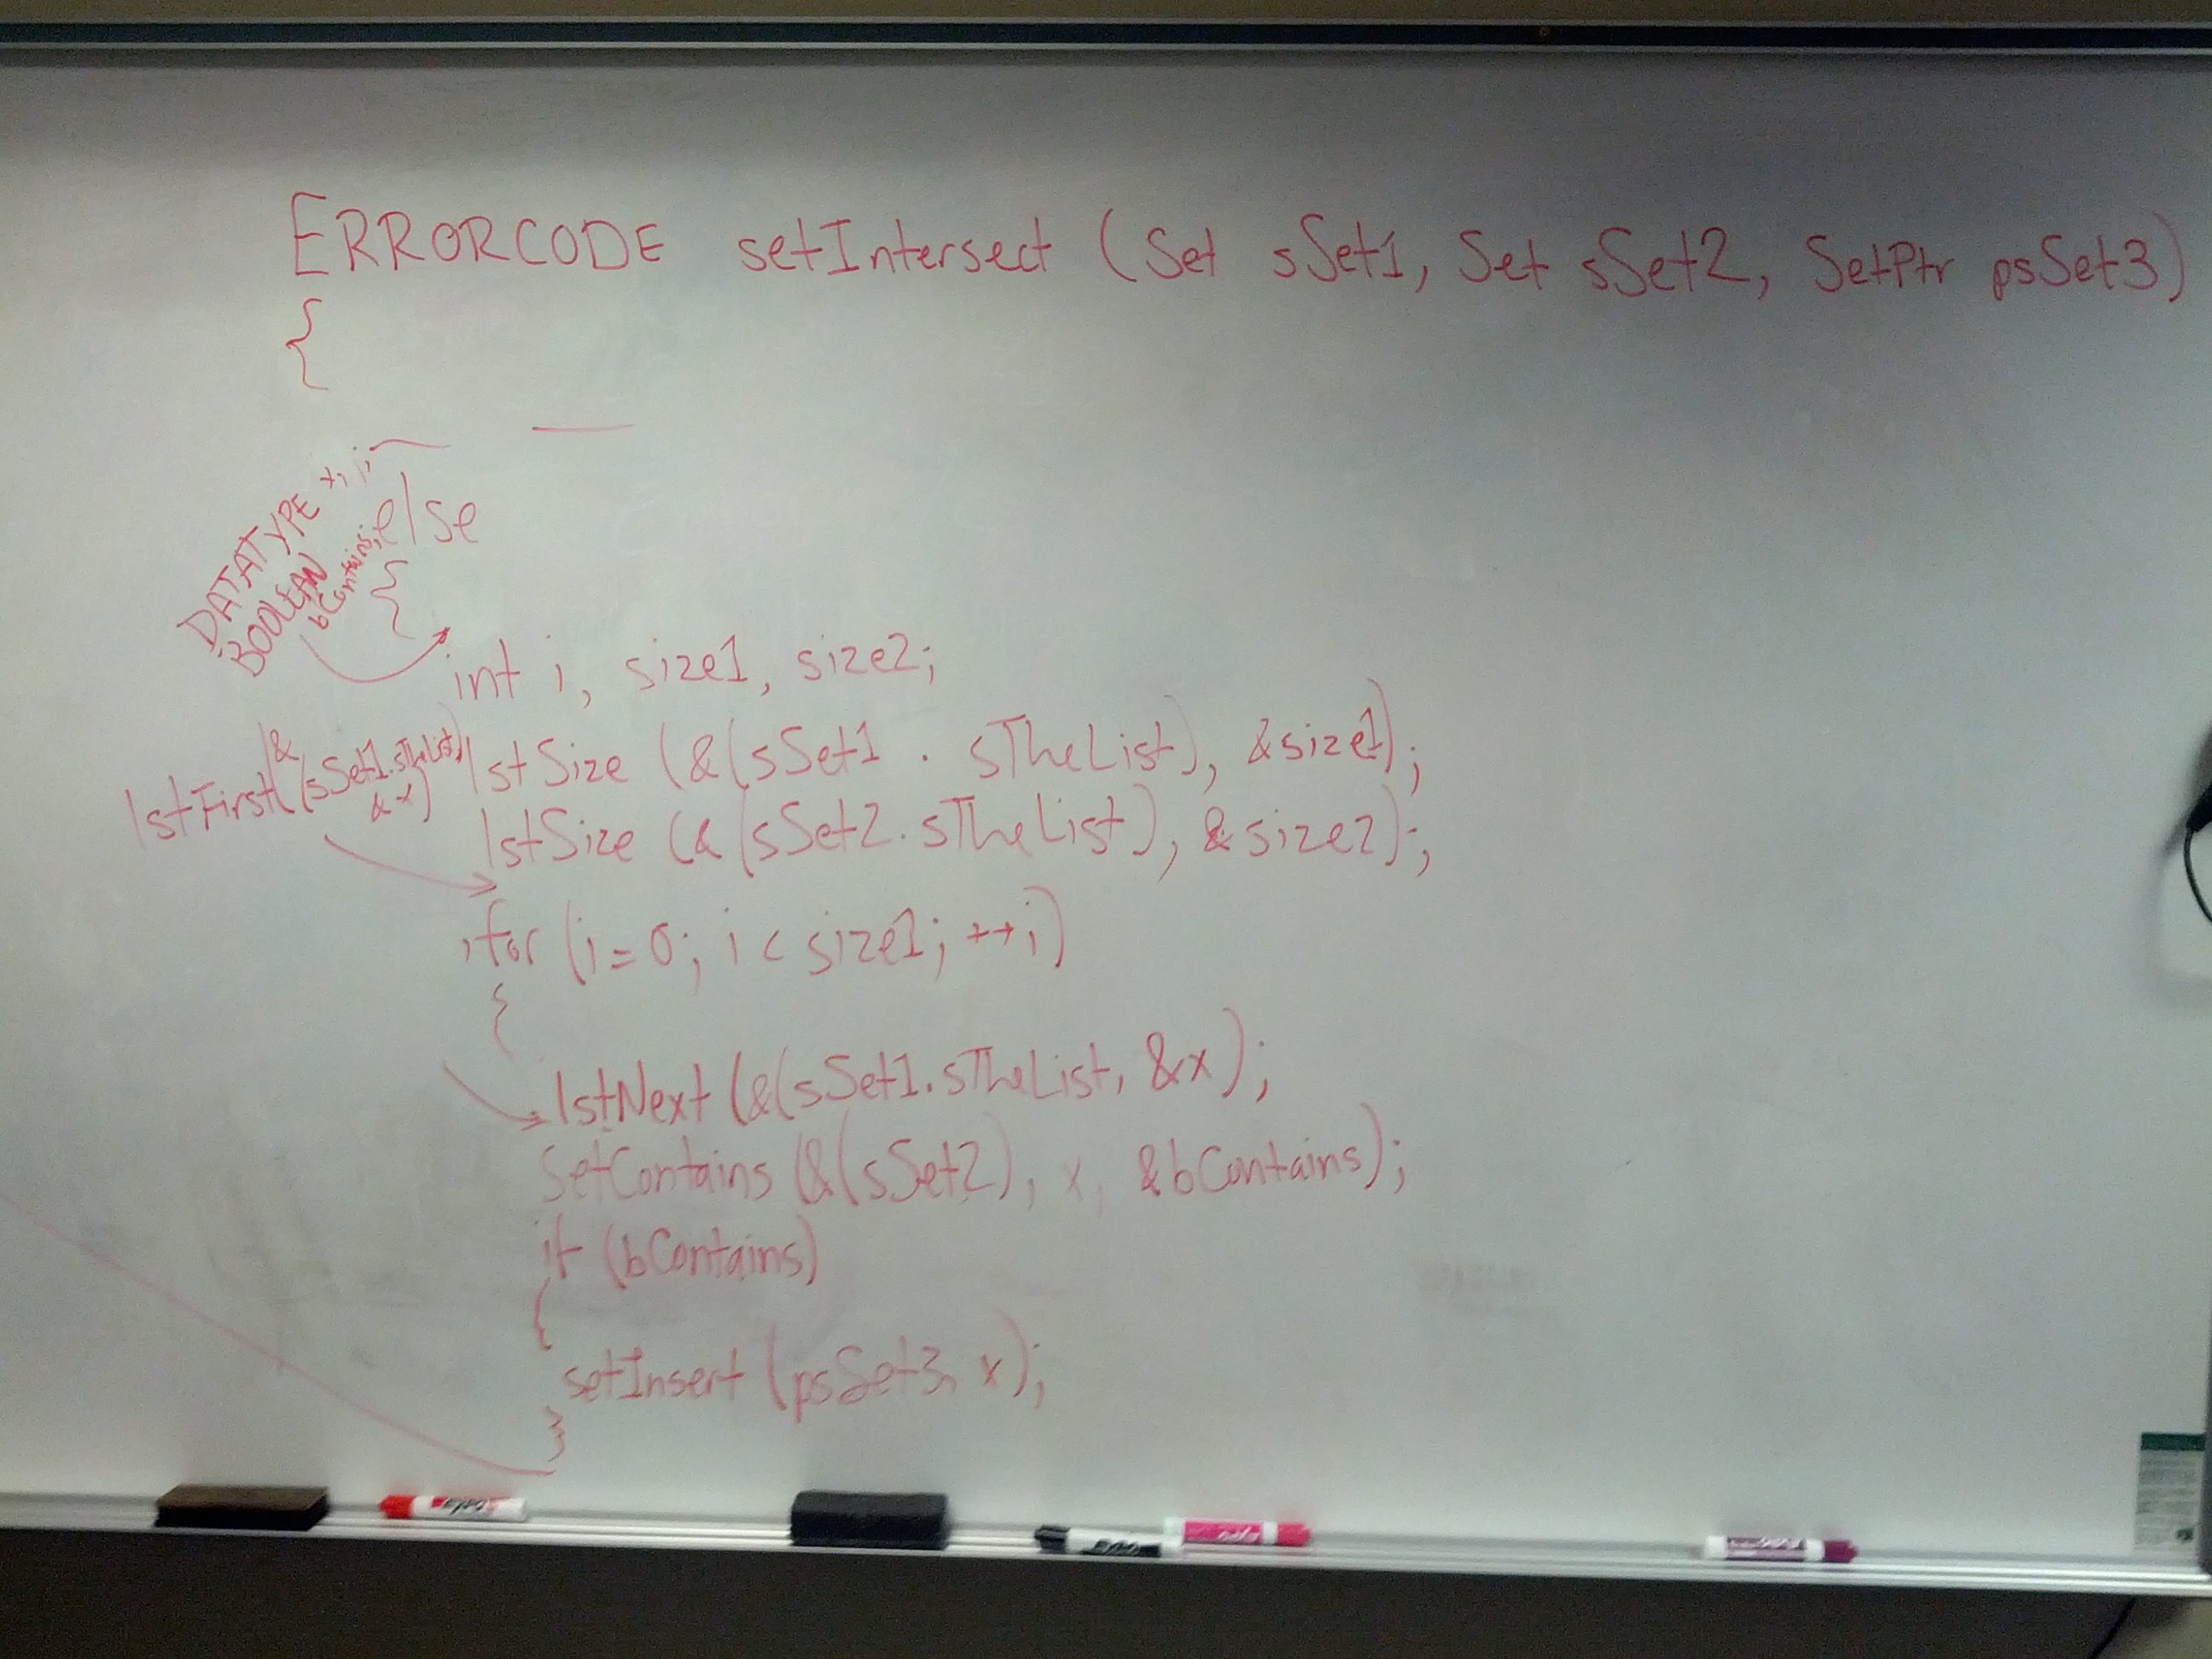 ERRORCODE setIntersect (Set sSet1, Set sSet2, SetPtr psSet3)
{
DATATYPE x, i;
BOOLEAN
bContains;
else
{
int i, size1, size2;
lstFirst(&(sSet1.sTheList),
&x)
lstSize (&(sSet1 . sTheList), &size1);
lstSize (&(sSet2.sTheList), &size2);
for (i=0; i < size1; ++i)
{
lstNext (&(sSet1.sTheList, &x);
SetContains (&(sSet2), x, &bContains);
if (bContains)
{
setInsert (psSet3, x);
}